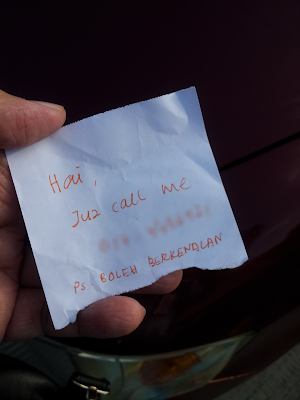 Hai,
Juz call me
Ps. BOLEH BERKENALAN